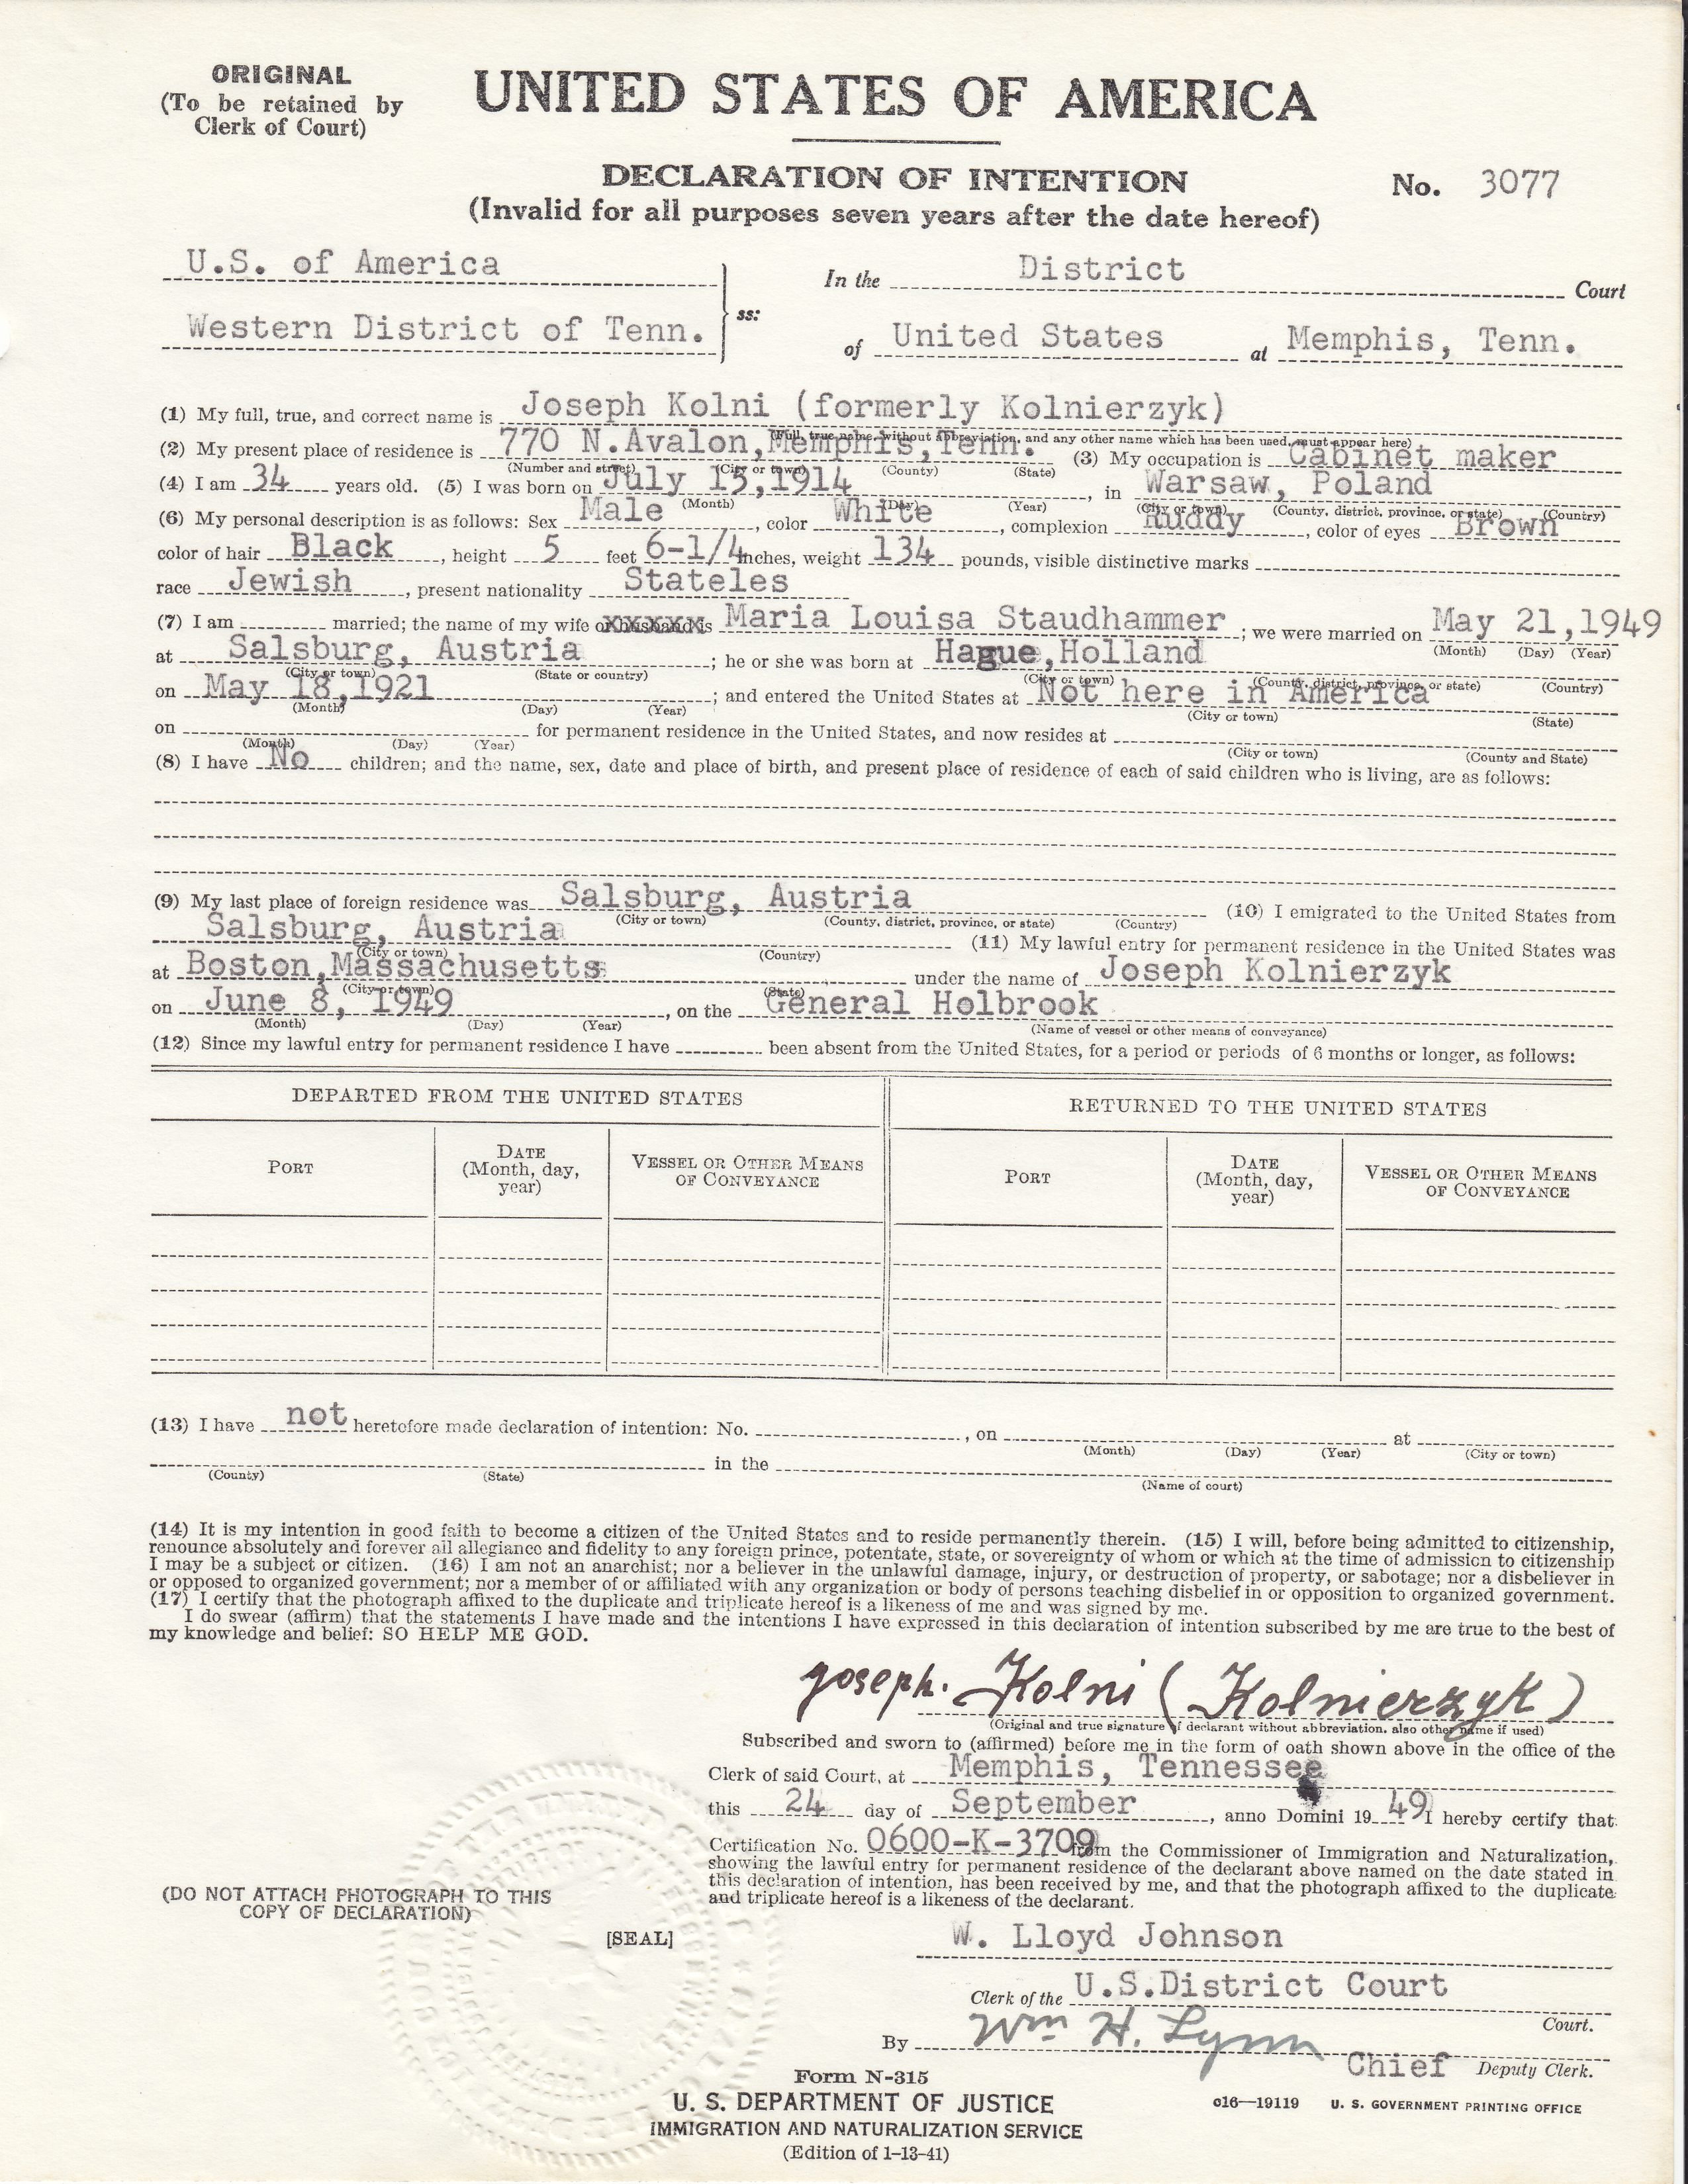 ORIGINAL
(To be retained by
Clerk of Court)
UNITED STATES OF AMERICA
DECLARATION OF INTENTION
(Invalid for all purposes seven years after the date hereof)
No. 3077
U.S. of America
Western District of Tenn.
ss:
In the District Court
of United States at Memphis, Tenn.
(1) My full, true, and correct name is Joseph Kolni (formerly Kolnierzyk)
(Full, true name, without abbreviation, and any other name which has been used, must appear here)
(2) My present place of residence is 770 N.Avalon,Memphis,Tenn. (3) My occupation is Cabinet maker
(Number and street) (City or town) (County) (State)
(4) I am 34 years old. (5) I was born on July 15,1914, in Warsaw, Poland
(Month) (Day) (Year) (City or town) (County, district, province, or state) (Country)
(6) My personal description is as follows: Sex Male, color White, complexion Ruddy, color of eyes Brown
color of hair Black, height 5 feet 6-1/4 inches, weight 134 pounds, visible distinctive marks
race Jewish, present nationality Stateles
(7) I am married; the name of my wife or husband is Maria Louisa Staudhammer; we were married on May 21,1949
(Month) (Day) (Year)
at Salsburg, Austria; he or she was born at Hague,Holland
(City or town) (State or country) (City or town) (County, district, province, or state) (Country)
on May 18,1921; and entered the United States at Not here in America
(Month) (Day) (Year) (City or town) (State)
on for permanent residence in the United States, and now resides at
(Month) (Day) (Year) (City or town) (County and State)
(8) I have No children; and the name, sex, date and place of birth, and present place of residence of each of said children who is living, are as follows:
(9) My last place of foreign residence was Salsburg, Austria (10) I emigrated to the United States from
(City or town) (County, district, province, or state) (Country)
Salsburg, Austria (11) My lawful entry for permanent residence in the United States was
(City or town) (Country)
at Boston,Massachusetts under the name of Joseph Kolnierzyk
(City or town) (State)
on June 8, 1949, on the General Holbrook
(Month) (Day) (Year) (Name of vessel or other means of conveyance)
(12) Since my lawful entry for permanent residence I have been absent from the United States, for a period or periods of 6 months or longer, as follows:
DEPARTED FROM THE UNITED STATES RETURNED TO THE UNITED STATES
PORT DATE (Month, day, year) VESSEL OR OTHER MEANS OF CONVEYANCE PORT DATE (Month, day, year) VESSEL OR OTHER MEANS OF CONVEYANCE
(13) I have not heretofore made declaration of intention: No. , on at
(Month) (Day) (Year) (City or town)
in the
(County) (State) (Name of court)
(14) It is my intention in good faith to become a citizen of the United States and to reside permanently therein. (15) I will, before being admitted to citizenship,
renounce absolutely and forever all allegiance and fidelity to any foreign prince, potentate, state, or sovereignty of whom or which at the time of admission to citizenship
I may be a subject or citizen. (16) I am not an anarchist; nor a believer in the unlawful damage, injury, or destruction of property, or sabotage; nor a disbeliever in
or opposed to organized government; nor a member of or affiliated with any organization or body of persons teaching disbelief in or opposition to organized government.
(17) I certify that the photograph affixed to the duplicate and triplicate hereof is a likeness of me and was signed by me.
I do swear (affirm) that the statements I have made and the intentions I have expressed in this declaration of intention subscribed by me are true to the best of
my knowledge and belief: SO HELP ME GOD.
Joseph. Kolni (Kolnierzyk)
(Original and true signature of declarant without abbreviation, also other name if used)
Subscribed and sworn to (affirmed) before me in the form of oath shown above in the office of the
Clerk of said Court, at Memphis, Tennessee
this 24 day of September, anno Domini 19 49 I hereby certify that
Certification No. 0600-K-3709 from the Commissioner of Immigration and Naturalization,
showing the lawful entry for permanent residence of the declarant above named on the date stated in
this declaration of intention, has been received by me, and that the photograph affixed to the duplicate
and triplicate hereof is a likeness of the declarant.
(DO NOT ATTACH PHOTOGRAPH TO THIS
COPY OF DECLARATION)
[SEAL]
W. Lloyd Johnson
Clerk of the U.S.District Court Court.
By Wm H. Lynn Chief Deputy Clerk.
Form N-315
U. S. DEPARTMENT OF JUSTICE
IMMIGRATION AND NATURALIZATION SERVICE
(Edition of 1-13-41)
c16—19119 U. S. GOVERNMENT PRINTING OFFICE